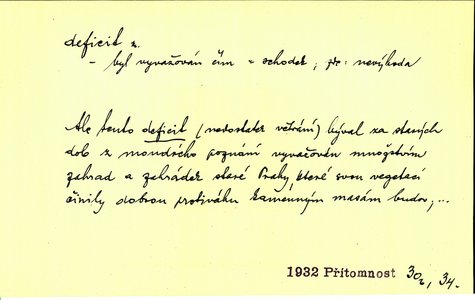 deficit z.
- byl vyvažován čím = schodek; př: nevýhoda
Ale tento deficit (nedostatek větrání) býval za starých
dob z moudrého poznání vyvažován množstvím
zahrad a zahrádek staré Prahy, které svou vegetací
činily dobrou protiváhu kamenným masám budov; ...
1932 Přítomnost 30₂, 34.